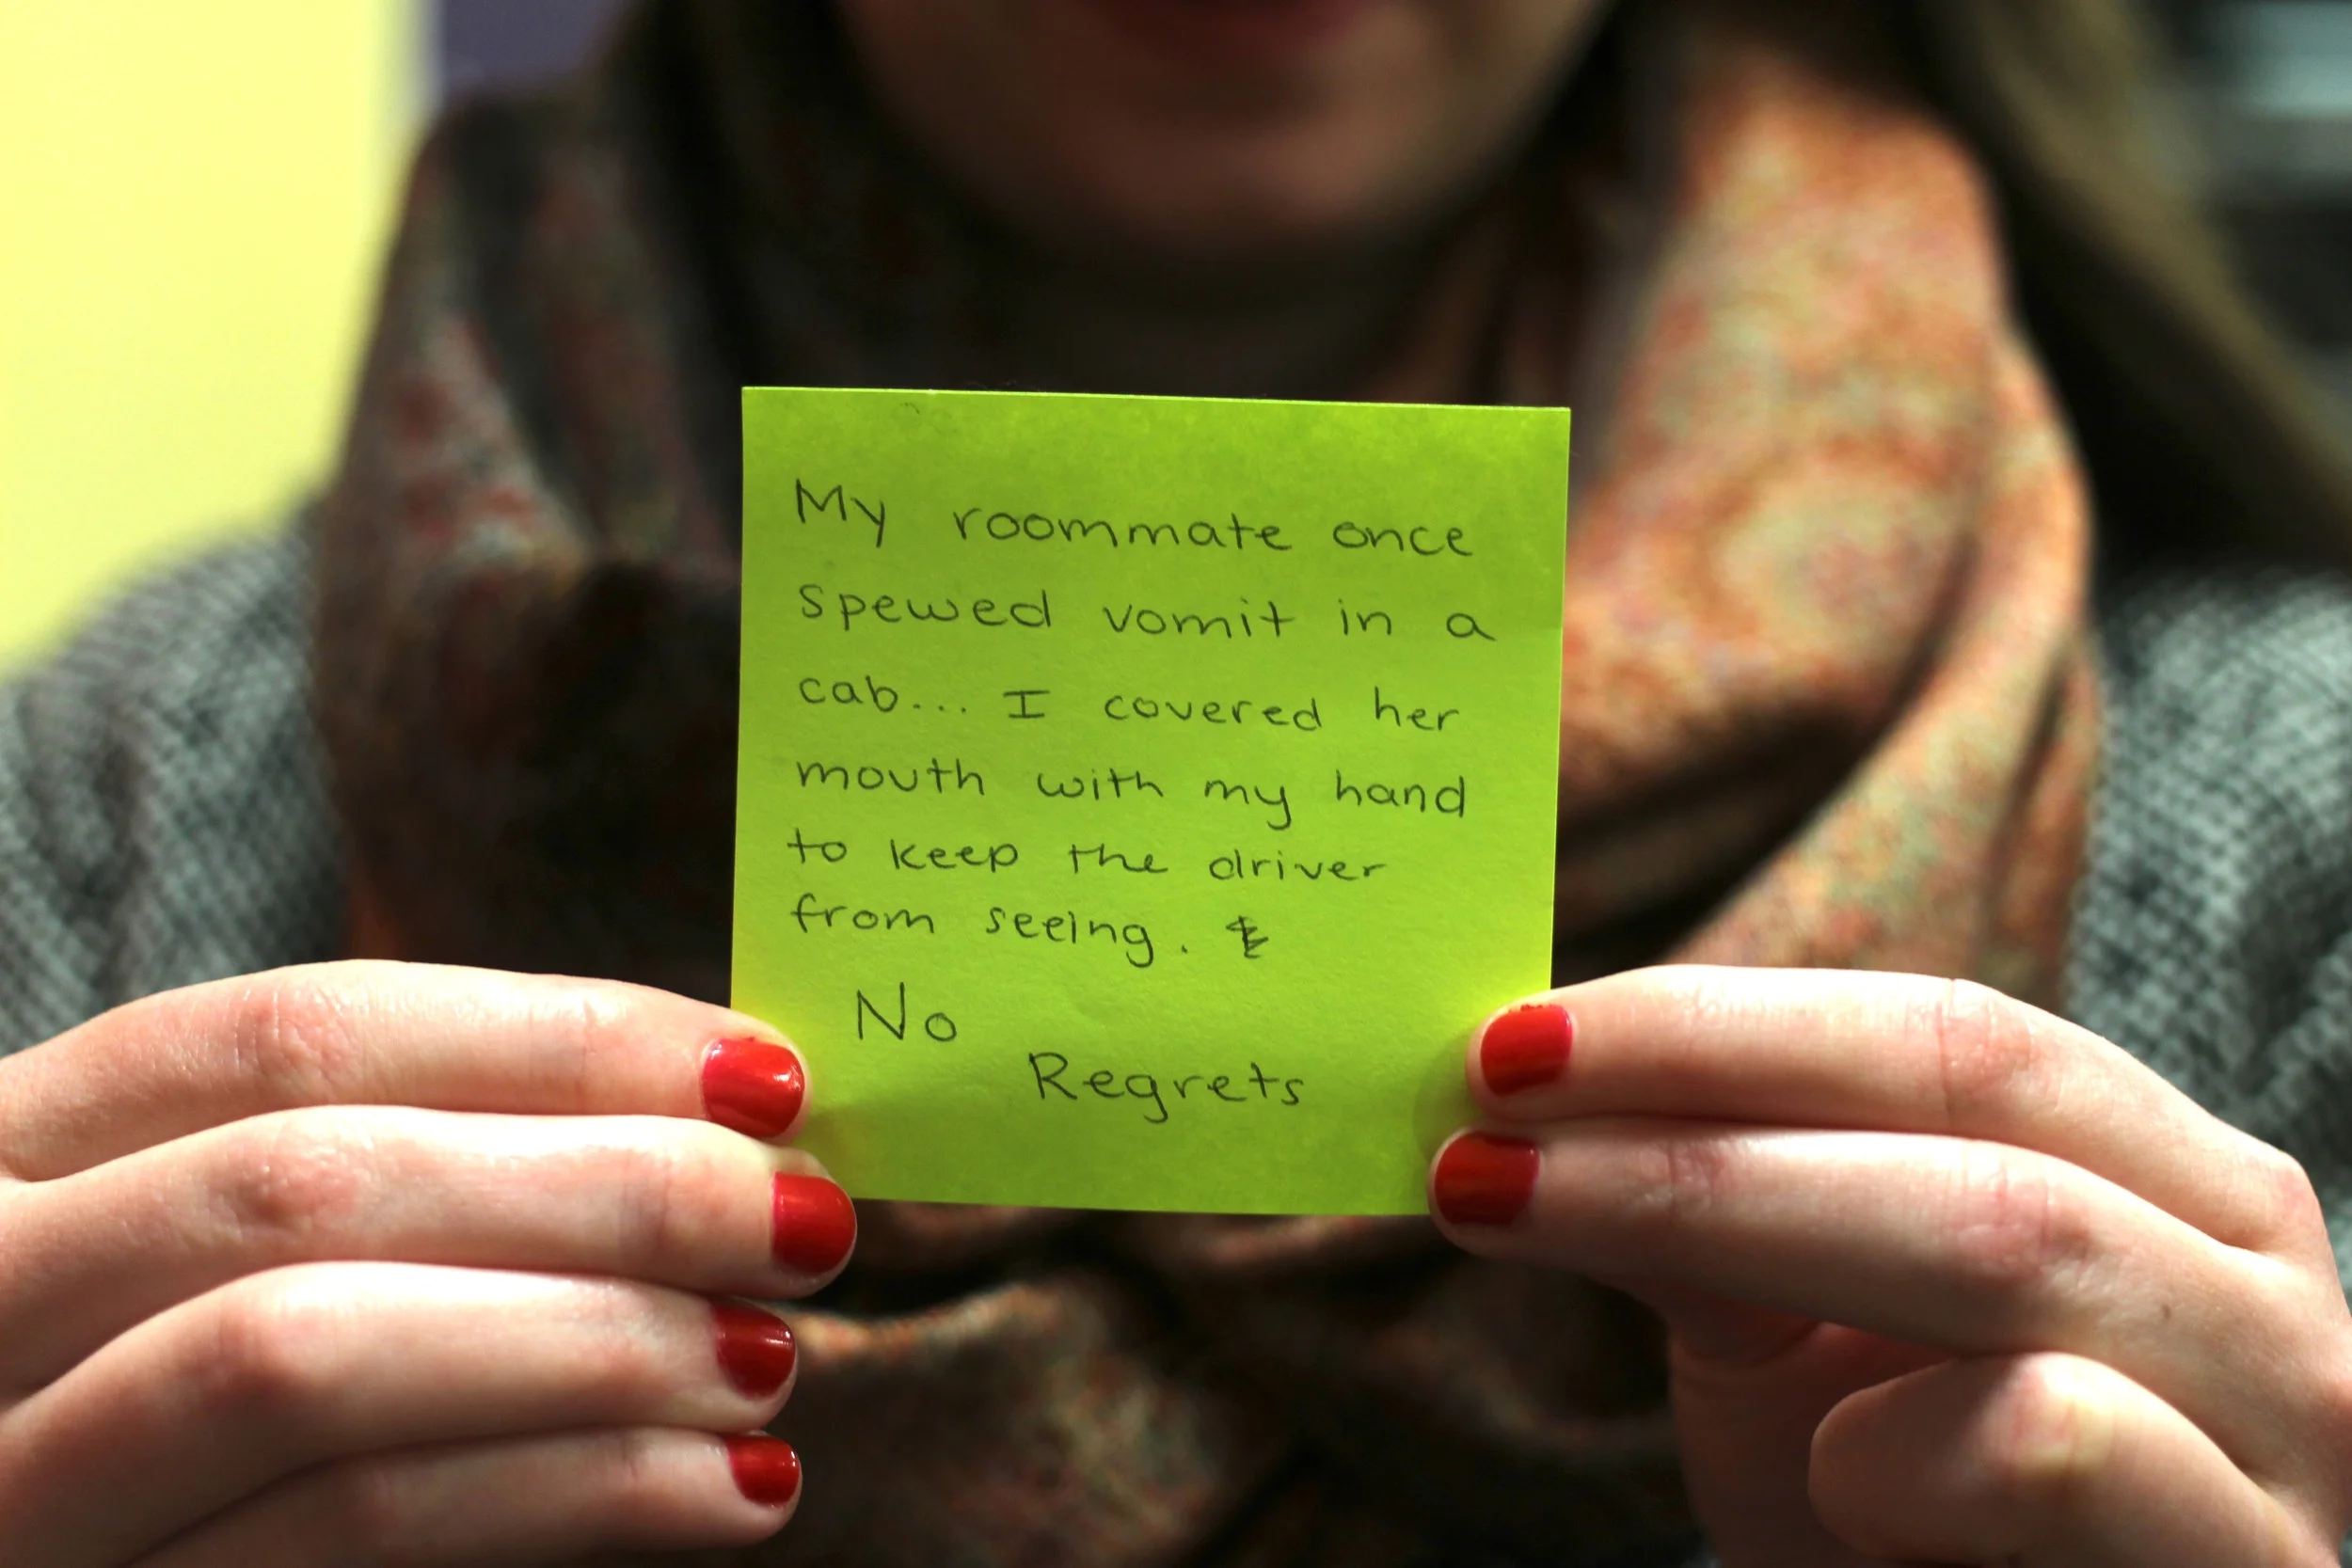 My roommate once
spewed vomit in a
cab... I covered her
mouth with my hand
to keep the driver
from seeing.
No
Regrets